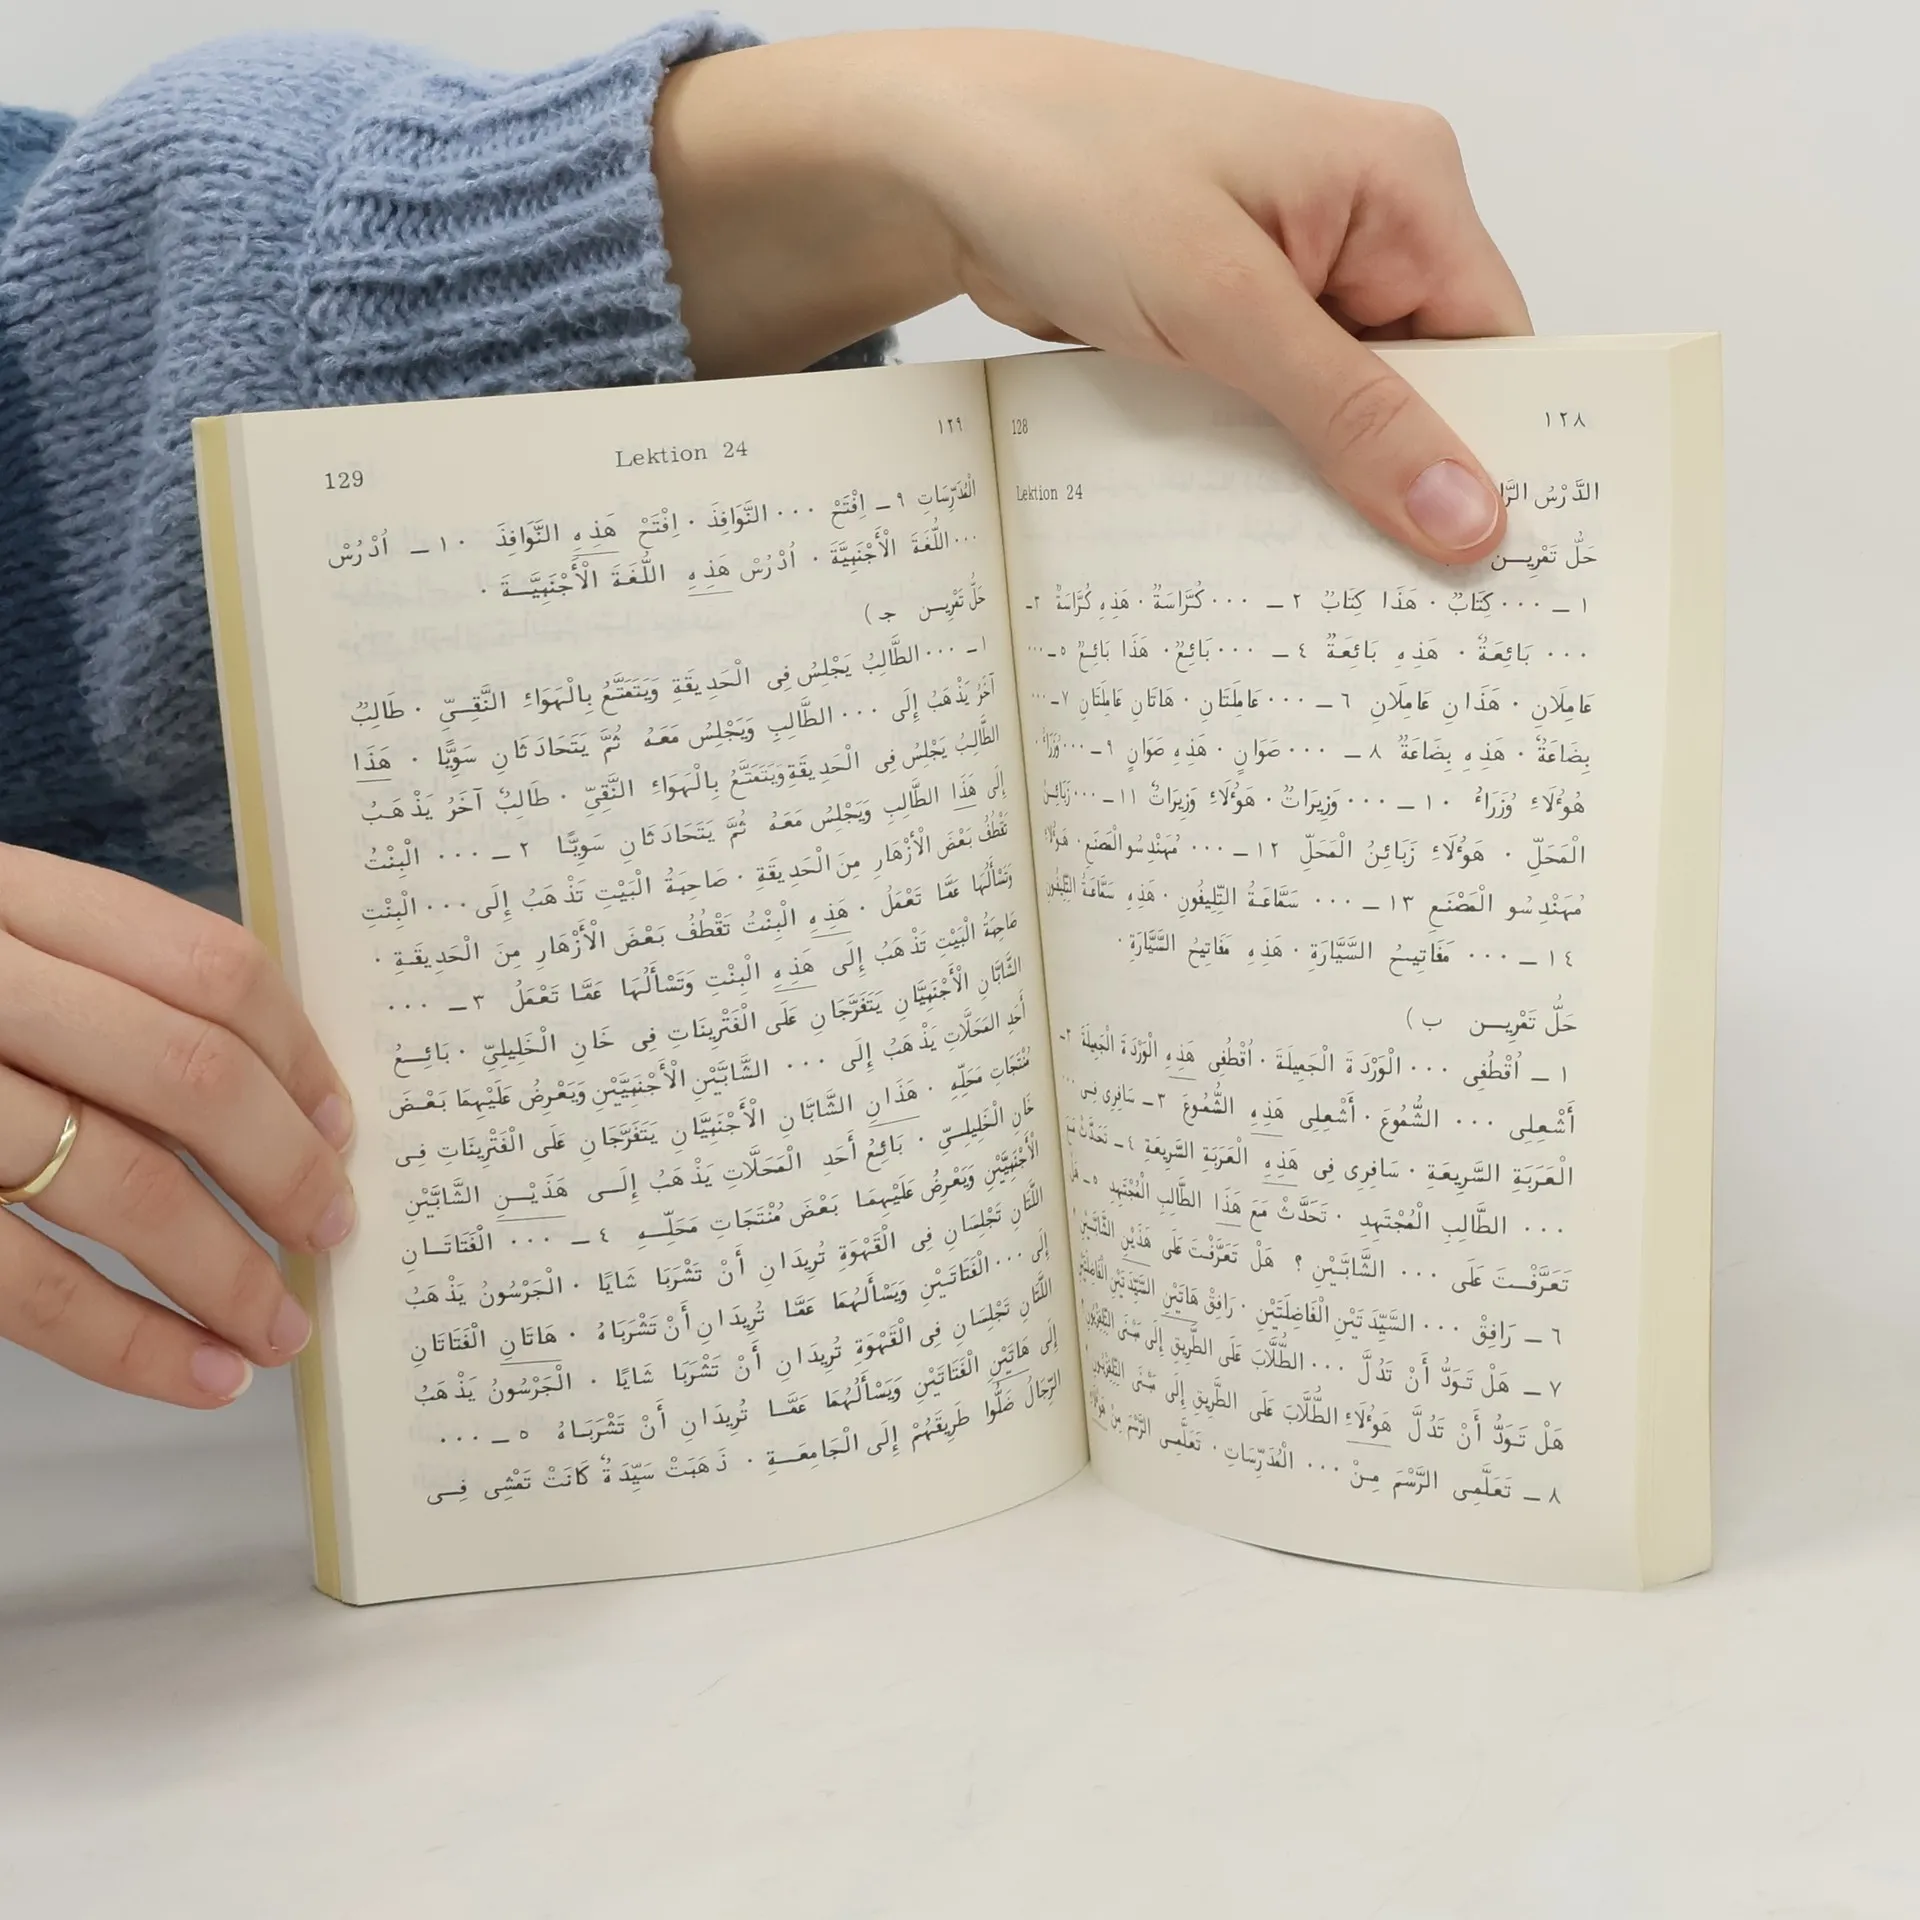 ١٢٨
128
Lektion 24
الدَّرْسُ
حَلُّ تَمْرِيـــن
١ ــ ... كِتَابٌ . هَذَا كِتَابٌ ٢ ــ ... كُرَّاسَةٌ . هَذِهِ كُرَّاسَةٌ ٣ــ
... بَائِعَةٌ . هَذِهِ بَائِعَةٌ ٤ ــ ... بَائِعٌ . هَذَا بَائِعٌ ٥ ــ ...
عَامِلَانِ . هَذَانِ عَامِلَانِ ٦ ــ ... عَامِلَتَانِ . هَاتَانِ عَامِلَتَانِ ٧ــ ...
بِضَاعَةٌ . هَذِهِ بِضَاعَةٌ ٨ ــ ... صَوَانٍ . هَذِهِ صَوَانٍ ٩ ــ ... وُزَرَاءُ .
هَؤُلَاءِ وُزَرَاءُ ١٠ ــ ... وَزِيرَاتٌ . هَؤُلَاءِ وَزِيرَاتٌ ١١ ــ ... زَبَائِنُ
الْمَحَلِّ . هَؤُلَاءِ زَبَائِنُ الْمَحَلِّ ١٢ ــ ... مُهَنْدِسُو الْمَصْنَعِ . هَؤُلَاءِ
مُهَنْدِسُو الْمَصْنَعِ ١٣ ــ ... سَمَّاعَةُ التِّلِيفُونِ . هَذِهِ سَمَّاعَةُ التِّلِيفُونِ
١٤ ــ ... مَفَاتِيحُ السَّيَّارَةِ . هَذِهِ مَفَاتِيحُ السَّيَّارَةِ .
حَلُّ تَمْرِيـــن ب )
١ ــ اُقْطُفِى ... الْوَرْدَةَ الْجَمِيلَةَ . اُقْطُفِى هَذِهِ الْوَرْدَةَ الْجَمِيلَةَ ٢ــ
أَشْعِلِى ... الشُّمُوعَ . أَشْعِلِى هَذِهِ الشُّمُوعَ ٣ــ سَافِرِى فِى ...
الْعَرَبَةِ السَّرِيعَةِ . سَافِرِى فِى هَذِهِ الْعَرَبَةِ السَّرِيعَةِ ٤ ــ تَحَدَّثْ مَعَ
... الطَّالِبِ الْمُجْتَهِدِ . تَحَدَّثْ مَعَ هَذَا الطَّالِبِ الْمُجْتَهِدِ ٥ ــ هَلْ
تَعَرَّفْــتَ عَلَى ... الشَّابَّيْنِ ؟ هَلْ تَعَرَّفْتَ عَلَى هَذَيْنِ الشَّابَّيْنِ
٦ ــ رَافِقْ ... السَّيِّدَتَيْنِ الْفَاضِلَتَيْنِ . رَافِقْ هَاتَيْنِ السَّيِّدَتَيْنِ الْفَاضِلَتَيْنِ
٧ ــ هَلْ تَوَدُّ أَنْ تَدُلَّ ... الطُّلَّابَ عَلَى الطَّرِيقِ إِلَى مَبْنَى التِّلِفِزْيُونِ
هَلْ تَوَدُّ أَنْ تَدُلَّ هَؤُلَاءِ الطُّلَّابَ عَلَى الطَّرِيقِ إِلَى مَبْنَى التِّلِفِزْيُونِ
٨ ــ تَعَلَّمِى الرَّسْمَ مِنْ ... الْمُدَرِّسَاتِ . تَعَلَّمِى الرَّسْمَ مِنْ هَؤُلَاءِ
١٢٩
Lektion 24
129
الْمُدَرِّسَاتِ ٩ ــ اِفْتَحْ ... النَّوَافِذَ . اِفْتَحْ هَذِهِ النَّوَافِذَ ١٠ ــ اُدْرُسْ
... اللُّغَةَ الْأَجْنَبِيَّةَ . اُدْرُسْ هَذِهِ اللُّغَةَ الْأَجْنَبِيَّـــةَ .
حَلُّ تَمْرِيـــن جـ )
١ ــ ... الطَّالِبُ يَجْلِسُ فِى الْحَدِيقَةِ وَيَتَمَتَّعُ بِالْهَوَاءِ النَّقِــىِّ . طَالِبٌ
آخَرُ يَذْهَبُ إِلَى ... الطَّالِبِ وَيَجْلِسُ مَعَهُ ثُمَّ يَتَحَادَثَانِ سَوِيًّا . هَذَا
الطَّالِبُ يَجْلِسُ فِى الْحَدِيقَةِ وَيَتَمَتَّعُ بِالْهَوَاءِ النَّقِىِّ . طَالِبٌ آخَرُ يَذْهَبُ
إِلَى هَذَا الطَّالِبِ وَيَجْلِسُ مَعَهُ ثُمَّ يَتَحَادَثَانِ سَوِيًّا ٢ ــ ... الْبِنْتُ
تَقْطُفُ بَعْضَ الْأَزْهَارِ مِنَ الْحَدِيقَةِ . صَاحِبَةُ الْبَيْتِ تَذْهَبُ إِلَى ... الْبِنْتِ
وَتَسْأَلُهَا عَمَّا تَعْمَلُ . هَذِهِ الْبِنْتُ تَقْطُفُ بَعْضَ الْأَزْهَارِ مِنَ الْحَدِيقَةِ .
صَاحِبَةُ الْبَيْتِ تَذْهَبُ إِلَى هَذِهِ الْبِنْتِ وَتَسْأَلُهَا عَمَّا تَعْمَلُ ٣ ــ ...
الشَّابَّانِ الْأَجْنَبِيَّانِ يَتَفَرَّجَانِ عَلَى الْفَتْرِينَاتِ فِى خَانِ الْخَلِيلِىِّ . بَائِــعُ
أَحَدِ الْمَحَلَّاتِ يَذْهَبُ إِلَى ... الشَّابَّيْنِ الْأَجْنَبِيَّيْنِ وَيَعْرِضُ عَلَيْهِمَا بَعْــضَ
مُنْتَجَاتِ مَحَلِّهِ . هَذَانِ الشَّابَّانِ الْأَجْنَبِيَّانِ يَتَفَرَّجَانِ عَلَى الْفَتْرِينَاتِ فِــى
خَانِ الْخَلِيلِــىِّ . بَائِعُ أَحَدِ الْمَحَلَّاتِ يَذْهَبُ إِلَــى هَذَيْــنِ الشَّابَّيْنِ
الْأَجْنَبِيَّيْنِ وَيَعْرِضُ عَلَيْهِمَا بَعْضَ مُنْتَجَاتِ مَحَلِّــهِ ٤ ــ ... الْفَتَاتَــانِ
اللَّتَانِ تَجْلِسَانِ فِى الْقَهْوَةِ تُرِيدَانِ أَنْ تَشْرَبَا شَايًا . الْجَرْسُونُ يَذْهَبُ
إِلَى ... الْفَتَاتَيْنِ وَيَسْأَلُهُمَا عَمَّا تُرِيدَانِ أَنْ تَشْرَبَاهُ . هَاتَانِ الْفَتَاتَانِ
اللَّتَانِ تَجْلِسَانِ فِى الْقَهْوَةِ تُرِيدَانِ أَنْ تَشْرَبَا شَايًا . الْجَرْسُونُ يَذْهَبُ
إِلَى هَاتَيْنِ الْفَتَاتَيْنِ وَيَسْأَلُهُمَا عَمَّــا تُرِيدَانِ أَنْ تَشْرَبَاهُ ٥ ــ ...
الرِّجَالُ ضَلُّوا طَرِيقَهُمْ إِلَى الْجَامِعَــةِ . ذَهَبَتْ سَيِّدَةٌ كَانَتْ تَمْشِى فِــى